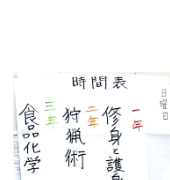 時間表
日曜日
一年
修身と護身
二年
狩猟術
三年
食品化学